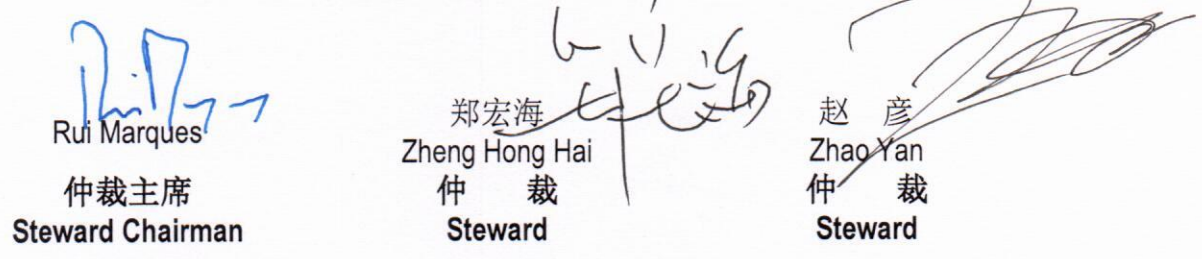 Rui Marques
仲裁主席
Steward Chairman
郑宏海
Zheng Hong Hai
仲 裁
Steward
赵 彦
Zhao Yan
仲 裁
Steward